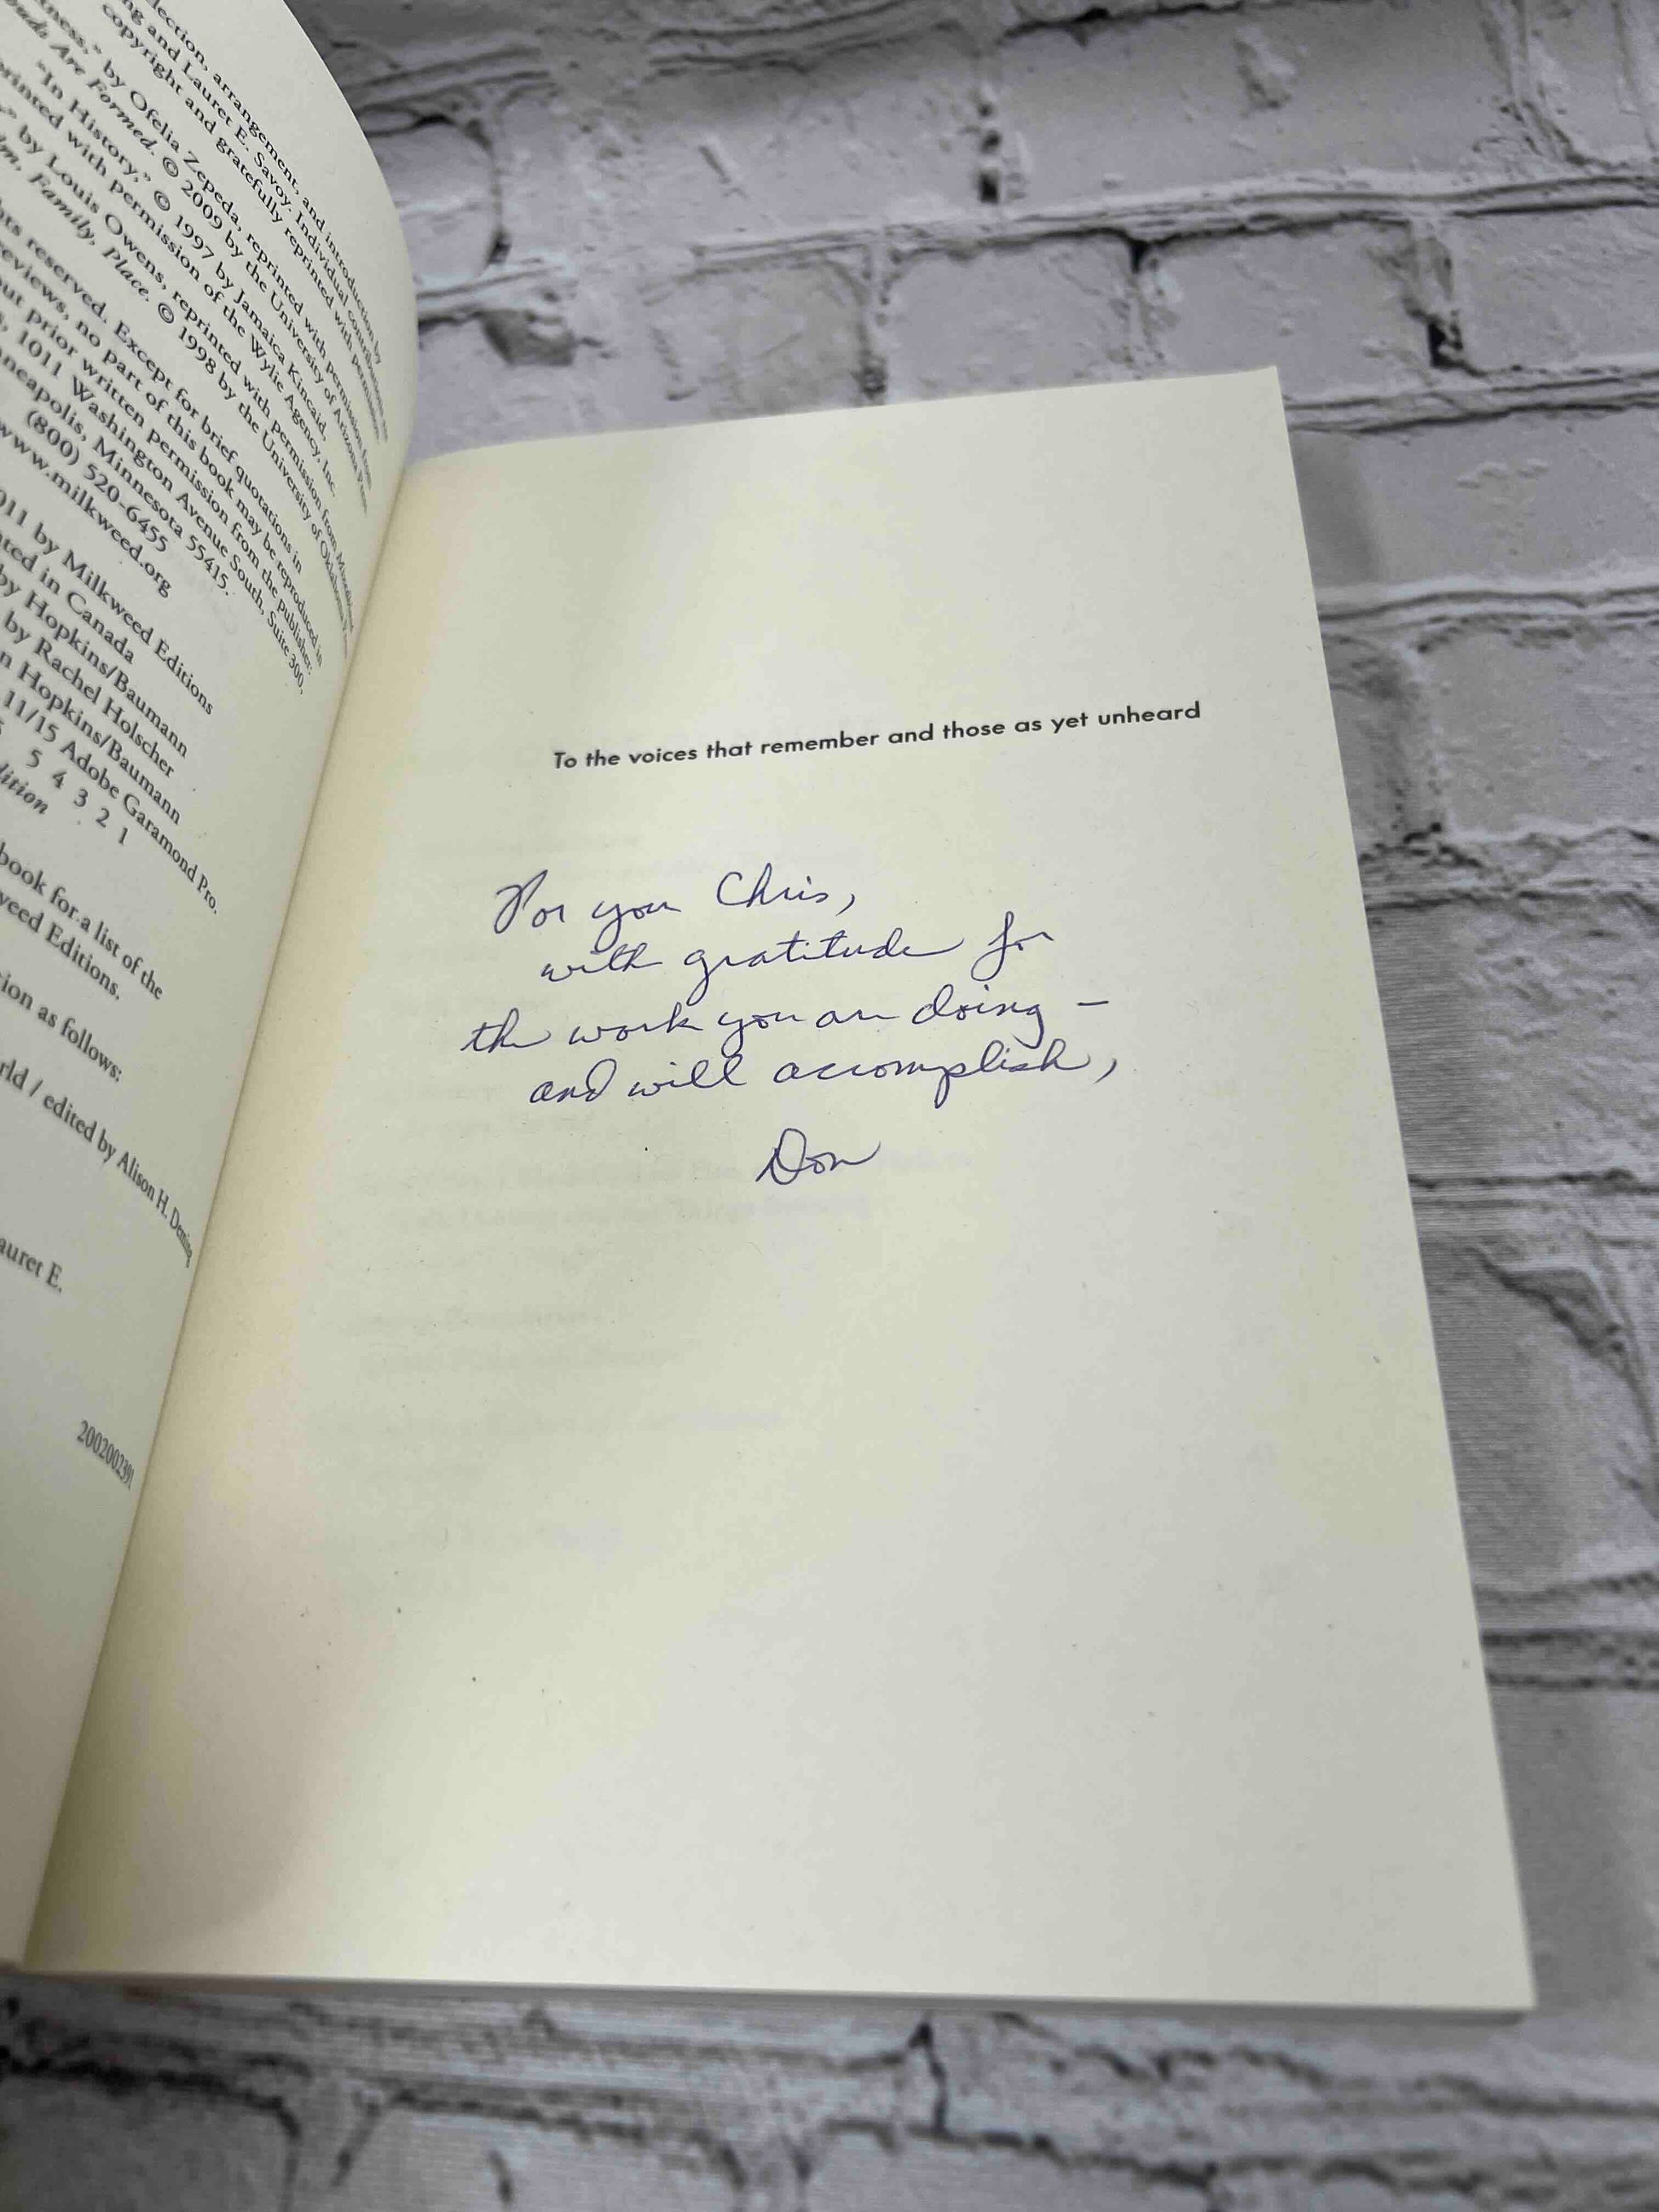 lection, arrangement, and introduction by
ng and Lauret E. Savoy. Individual contributions
copyright and gratefully reprinted with permission.
ness," by Ofelia Zepeda, reprinted with permission from
ouds Are Formed. © 2009 by the University of Arizona Press.
"In History," © 1997 by Jamaica Kincaid,
rinted with permission of the Wylie Agency, Inc.
" by Louis Owens, reprinted with permission from
Family, Place. © 1998 by the University of Oklahoma
hts reserved. Except for brief quotations in
reviews, no part of this book may be reproduced in
out prior written permission from the publisher:
1011 Washington Avenue South, Suite 300,
neapolis, Minnesota 55415.
(800) 520-6455
www.milkweed.org
011 by Milkweed Editions
nted in Canada
by Hopkins/Baumann
by Rachel Holscher
n Hopkins/Baumann
11/15 Adobe Garamond Pro.
5 4 3 2 1
dition
book for a list of the
weed Editions.
tion as follows:
rld / edited by Alison H. Deming,
auret E.
2002002391
To the voices that remember and those as yet unheard
For you Chris,
with gratitude for
the work you are doing –
and will accomplish,
Don